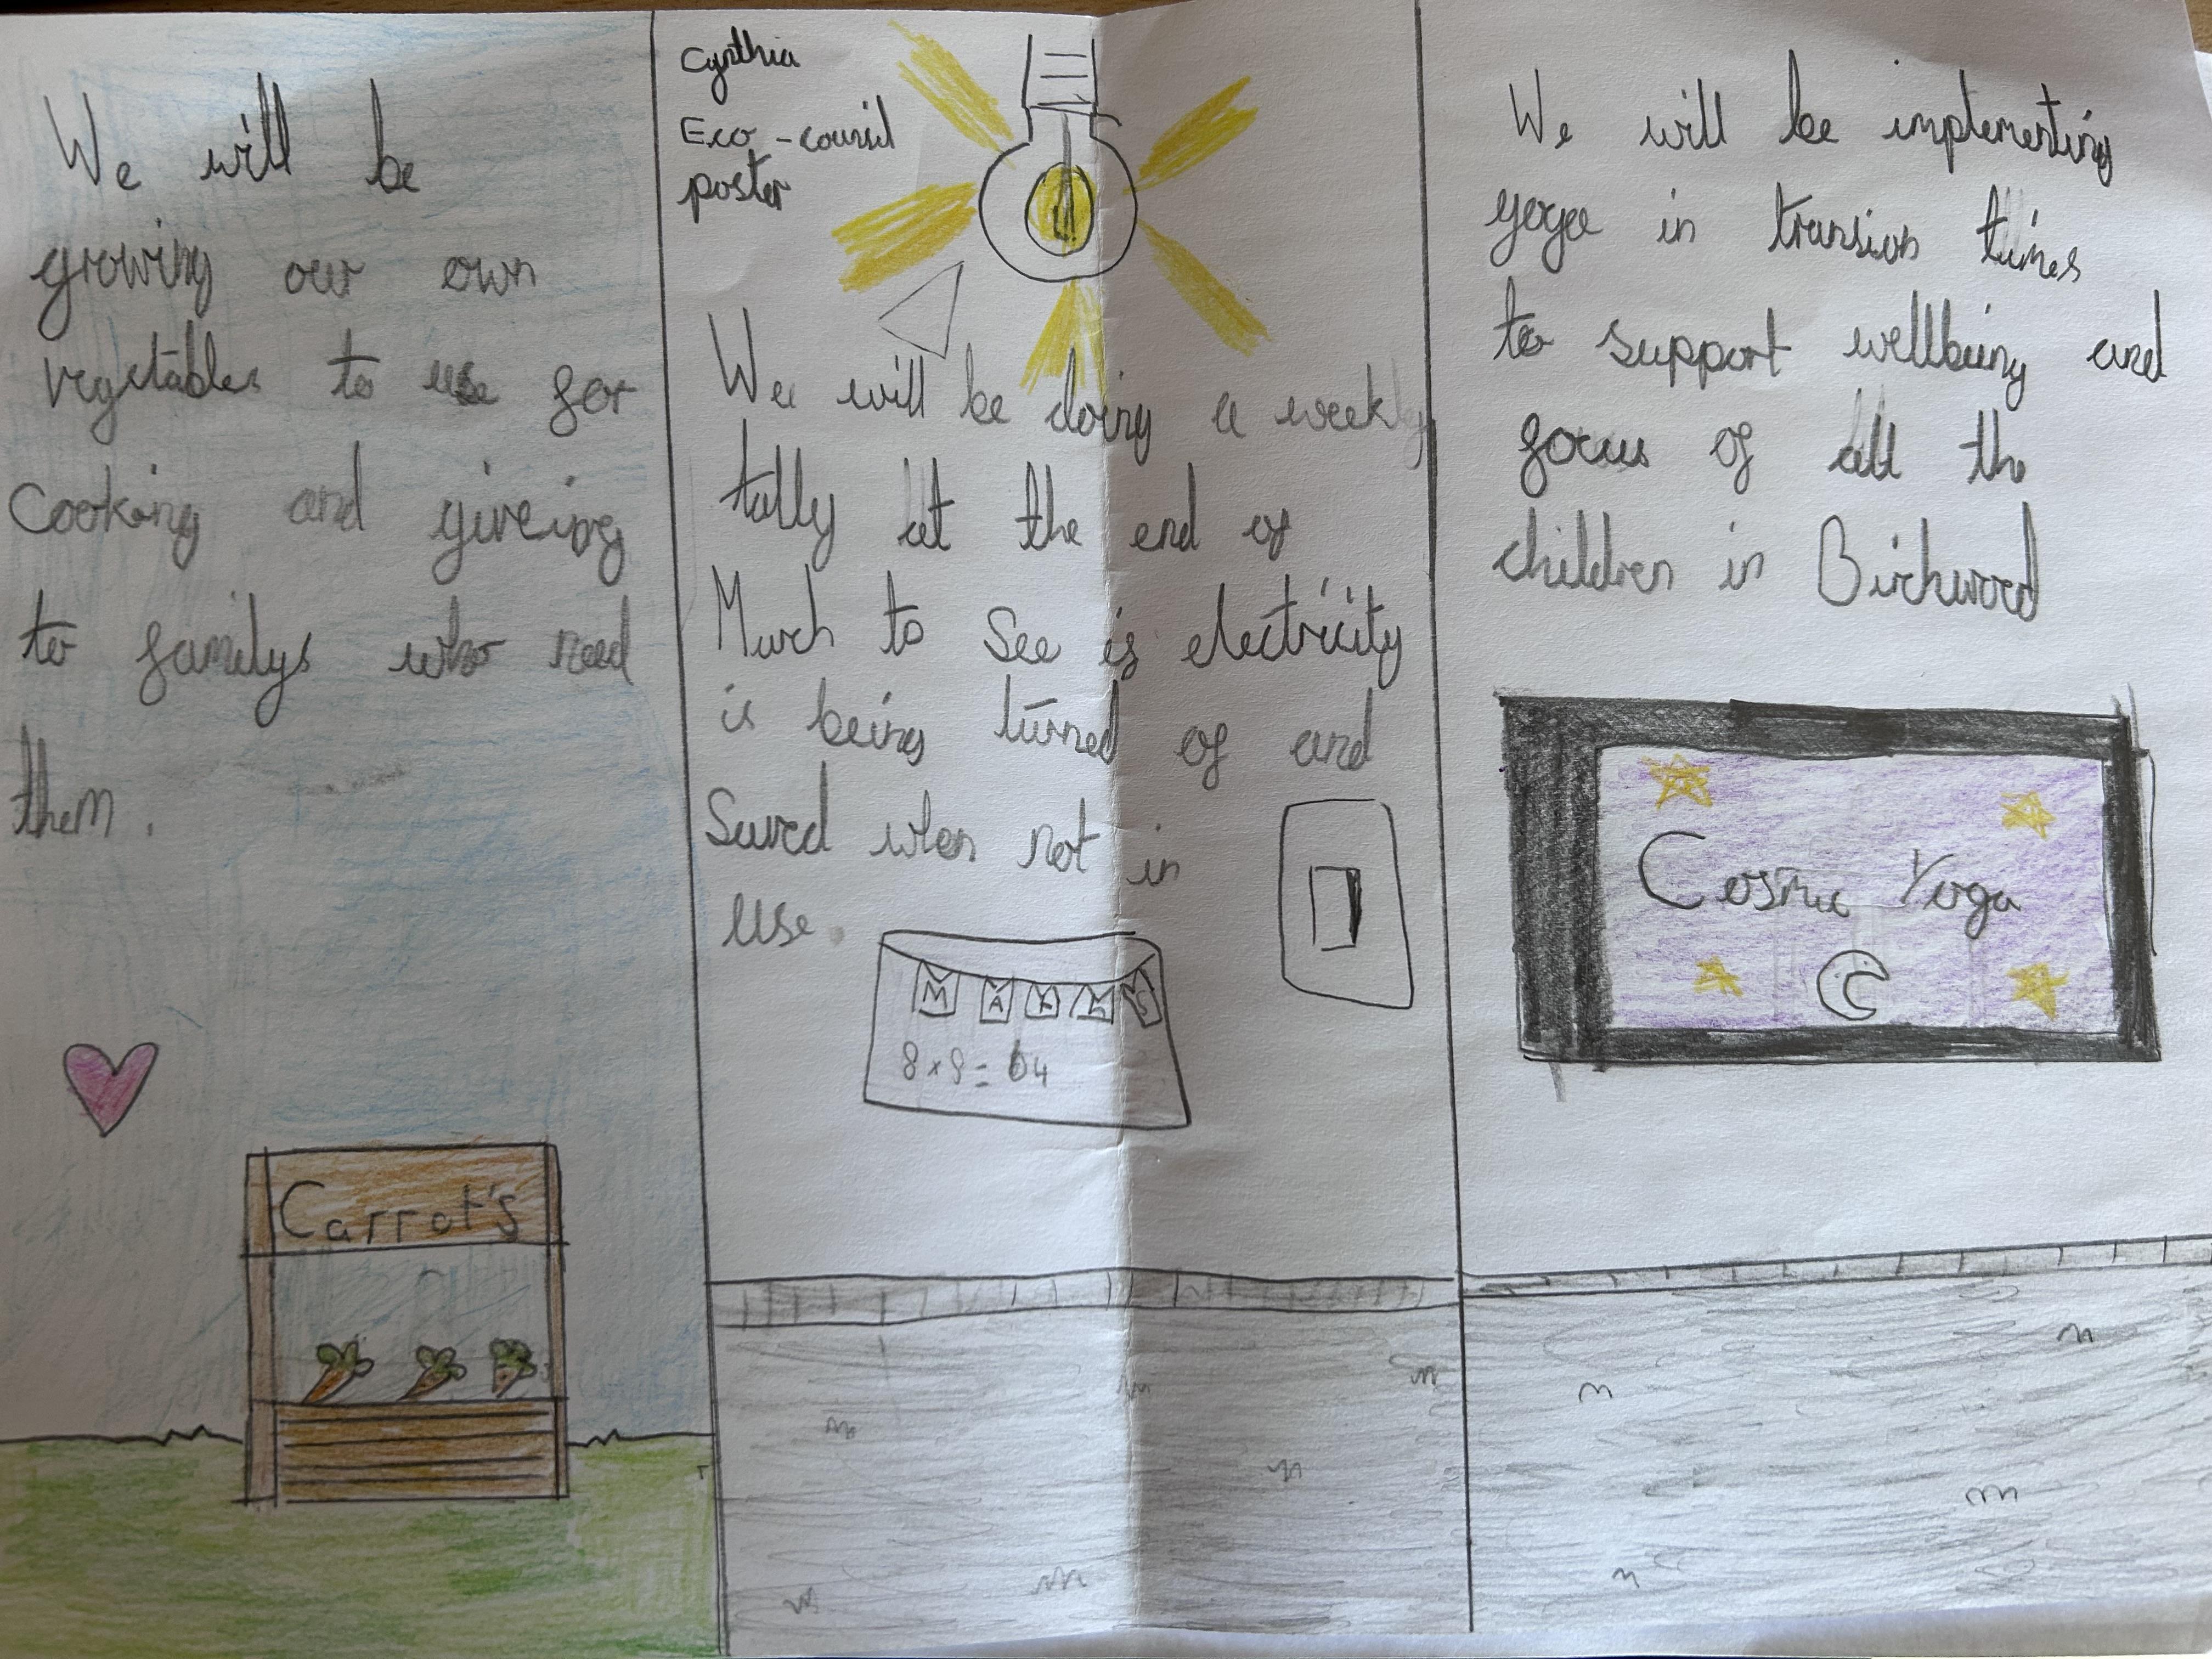 We will be
growing our own
vegetables to use for
Cooking and giveing
to familys who need
them.
Carrot's
Cynthia
Eco-council
poster
We will be doing a weekly
tally at the end of
March to See is electricity
is being turned of and
Saved when not in
use.
MATHS
8 x 8 = 64
We will be implementing
yoga in transion times
to support wellbeing and
focus of all the
children in Birchwood
Cosmic Yoga